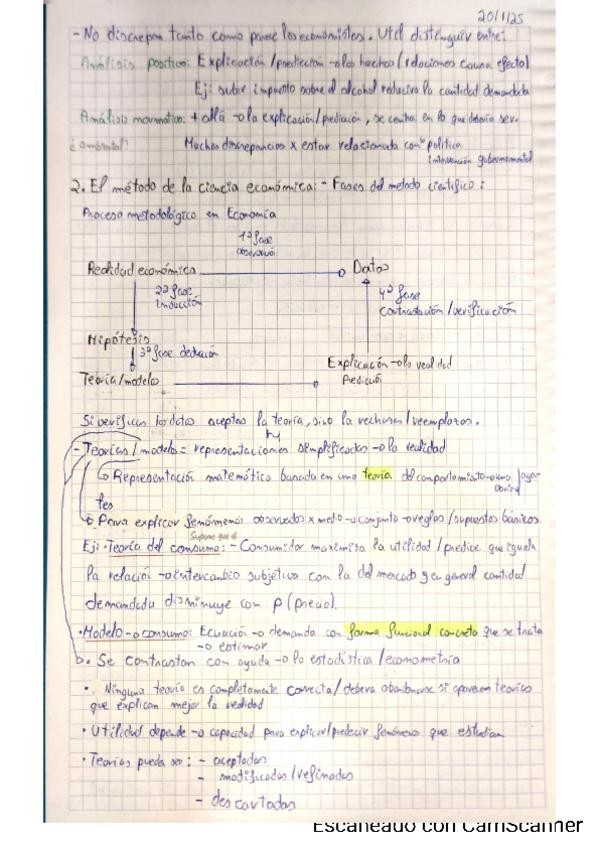 20/1/25
- No discrepan tanto como parece los economistas. Util distinguir entre:
Análisis positivo: Explicación/predicción -o los hechos (relaciones causa efecto)
Ej: subir impuesto sobre el alcohol reduciría la cantidad demandada
Análisis normativo: + allá -o la explicación/predicción, se centra en lo que debería ser.
Muchas discrepancias x estar relacionada con política
intervención gubernamental
2. El método de la ciencia económica: - Fases del metodo científico:
Proceso metodológico en Economía
1ª fase
observación
Realidad económica Datos
2ª fase
inducción
4ª fase
contrastación/verificación
Hipótesis
3ª fase deducción
Explicación -o la realidad
Teoría/modelos Predicción
Si verificas los datos aceptas la teoría, sino la rechazas/reemplazas.
- Teorías/modelos = representaciones simplificadas -o la realidad
Representación matemática basada en una teoría del comportamiento
tes
Para explicar fenómenos observados x medio -o conjunto -o reglas/supuestos básicos
Supone que el
Ej: Teoría del consumo: - Consumidor maximiza la utilidad/predice que iguala
la relación -o intercambio subjetiva con la del mercado y en general cantidad
demandada disminuye con p (precio).
• Modelo -o consumo: Ecuación -o demanda con forma funcional concreta que se trata
-o estimar
• Se contrastan con ayuda -o la estadística/econometría
• Ninguna teoría es completamente correcta/debera abandonarse si aparecen teorías
que explican mejor la realidad
• Utilidad depende -o capacidad para explicar/predecir fenómeno que estudian
• Teorías pueda ser: - aceptadas
- modificadas/refinadas
- descartadas
Escaneado con CamScanner